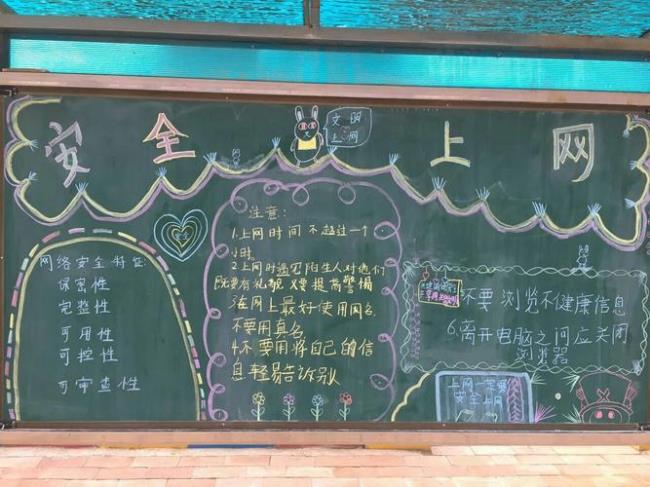 安全上网
文明
上网
网络安全特征:
保密性
完整性
可用性
可控性
可审查性
安全
注意:
1.上网时间不超过一个
小时.
2.上网时遇见陌生人对他们
既要有礼貌又要提高警惕
3.在网上最好使用网名.
不要用真名
4.不要用将自己的信
息轻易告诉别
不要浏览不健康信息
6.离开电脑之间应关闭
浏览器
上网一
安全上网